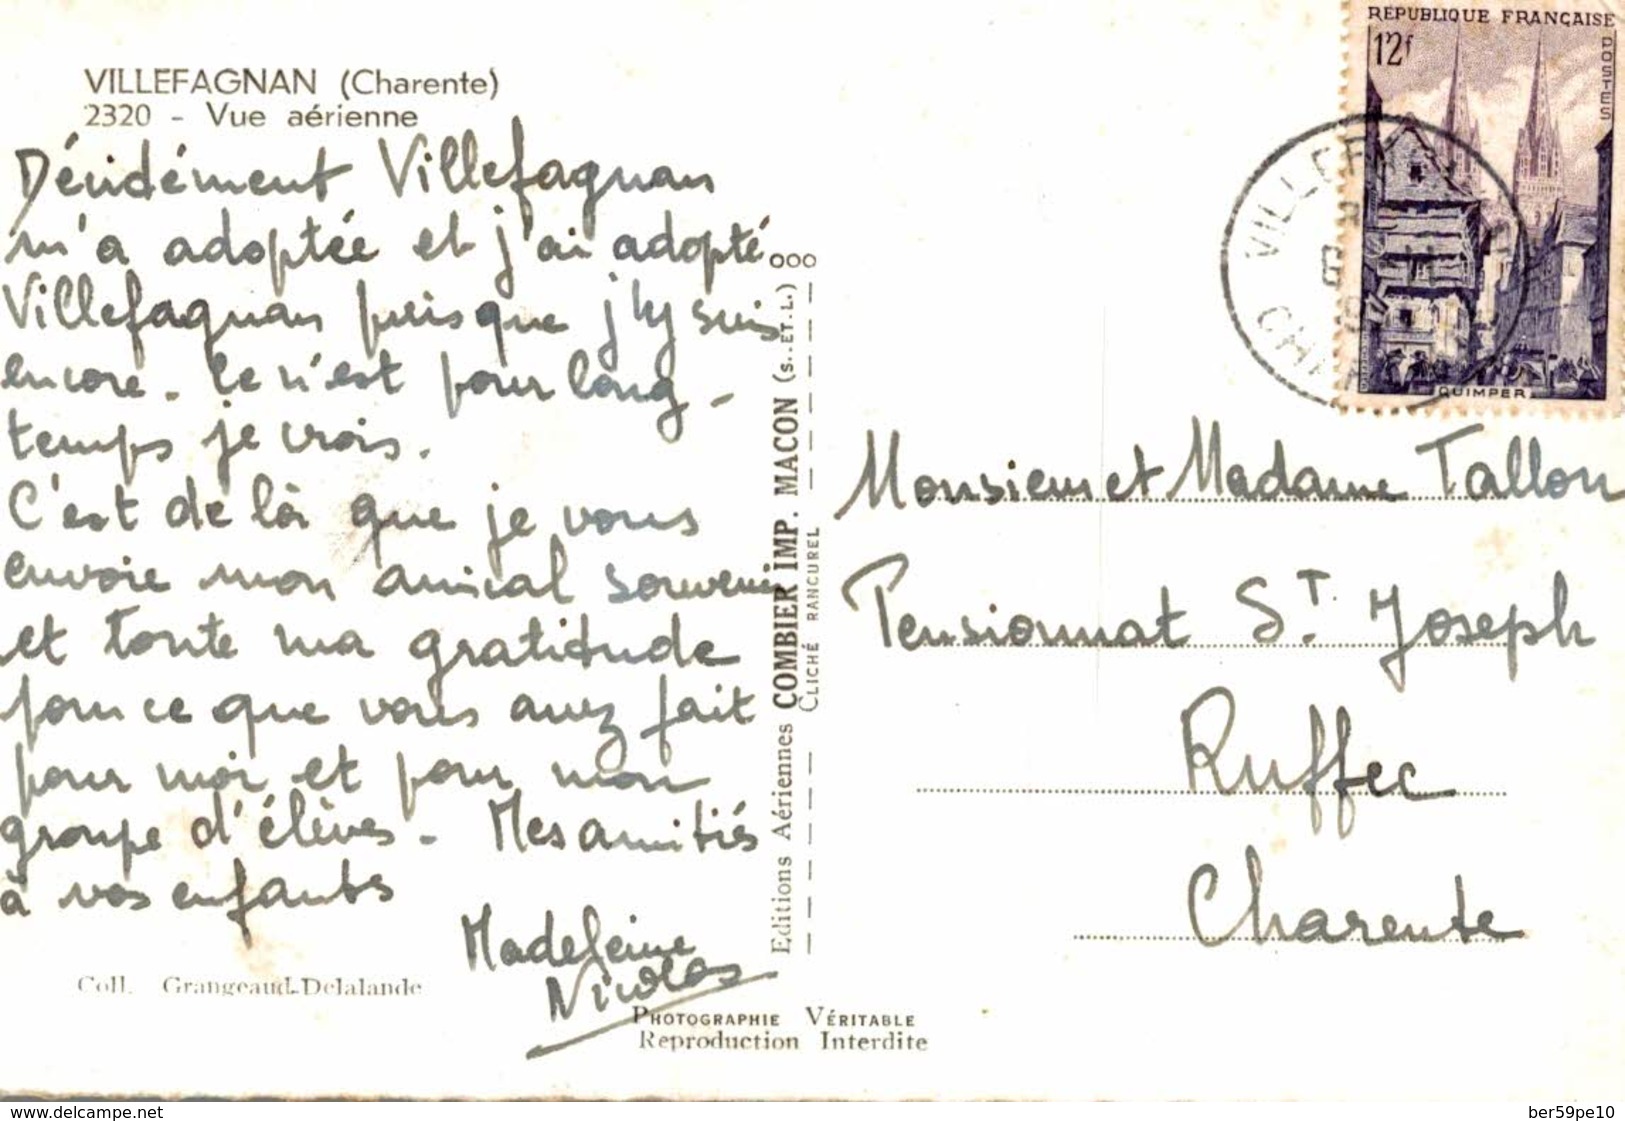 VILLEFAGNAN (Charente)
2320 - Vue aérienne
Décidément Villefagnan
m'a adoptée et j'ai adopté
Villefagnan puisque j'y suis
encore. Ce n'est pour long-
temps je crois.
C'est de là que je vous
envoie mon amical souvenir
et toute ma gratitude
pour ce que vous avez fait
pour moi et pour mon
groupe d'élèves. Mes amitiés
à vos enfants
Madeleine
Nicolas
Coll. Grangeaud-Delalande
Editions Aériennes COMBIER IMP. MACON (S.-ET-L.) ooo
CLICHÉ RANCUREL
PHOTOGRAPHIE VÉRITABLE
Reproduction Interdite
RÉPUBLIQUE FRANÇAISE
12f
POSTES
QUIMPER
Monsieur et Madame Tallon
Pensionnat St. Joseph
Ruffec
Charente
www.delcampe.net
ber59pe10